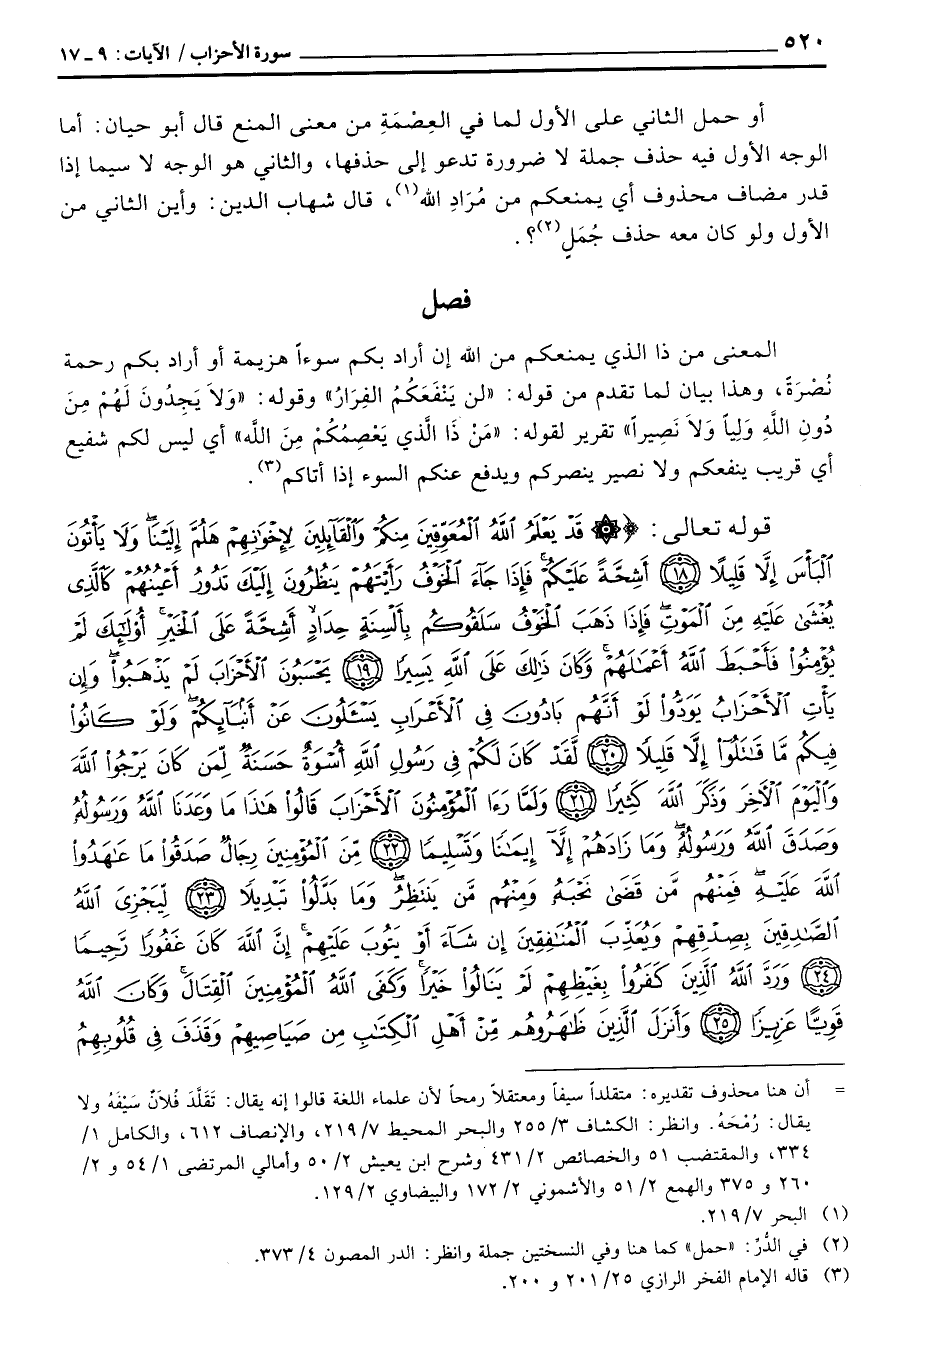 ٥٢٠ سورة الأحزاب / الآيات: ٩ ـ ١٧
أو حمل الثاني على الأول لما في العِصْمَةِ من معنى المنع قال أبو حيان: أما
الوجه الأول فيه حذف جملة لا ضرورة تدعو إلى حذفها، والثاني هو الوجه لا سيما إذا
قدر مضاف محذوف أي يمنعكم من مُرَادِ الله(١)، قال شهاب الدين: وأين الثاني من
الأول ولو كان معه حذف جُمَلٍ(٢)؟.
فصل
المعنى من ذا الذي يمنعكم من الله إن أراد بكم سوءاً هزيمة أو أراد بكم رحمة
نُصْرَةً، وهذا بيان لما تقدم من قوله: «لن يَنْفَعَكُمُ الفِرَارُ» وقوله: «وَلاَ يَجِدُونَ لَهُمْ مِنَ
دُونِ اللَّهِ وَلِياً وَلاَ نَصِيراً» تقرير لقوله: «مَنْ ذَا الَّذي يَعْصِمُكُمْ مِنَ اللَّه» أي ليس لكم شفيع
أي قريب ينفعكم ولا نصير ينصركم ويدفع عنكم السوء إذا أتاكم(٣).
قوله تعالى: ﴿۞ قَدْ يَعْلَمُ اللَّهُ الْمُعَوِّقِينَ مِنكُمْ وَالْقَآئِلِينَ لِإِخْوَٰنِهِمْ هَلُمَّ إِلَيْنَاۖ وَلَا يَأْتُونَ
الْبَأْسَ إِلَّا قَلِيلًا ﴿١٨﴾ أَشِحَّةً عَلَيْكُمْۖ فَإِذَا جَآءَ الْخَوْفُ رَأَيْتَهُمْ يَنظُرُونَ إِلَيْكَ تَدُورُ أَعْيُنُهُمْ كَالَّذِى
يُغْشَىٰ عَلَيْهِ مِنَ الْمَوْتِۖ فَإِذَا ذَهَبَ الْخَوْفُ سَلَقُوكُم بِأَلْسِنَةٍ حِدَادٍ أَشِحَّةً عَلَى الْخَيْرِۚ أُوْلَٰٓئِكَ لَمْ
يُؤْمِنُوا۟ فَأَحْبَطَ اللَّهُ أَعْمَٰلَهُمْۚ وَكَانَ ذَٰلِكَ عَلَى اللَّهِ يَسِيرًا ﴿١٩﴾ يَحْسَبُونَ الْأَحْزَابَ لَمْ يَذْهَبُوا۟ۖ وَإِن
يَأْتِ الْأَحْزَابُ يَوَدُّوا۟ لَوْ أَنَّهُم بَادُونَ فِى الْأَعْرَابِ يَسْـَٔلُونَ عَنْ أَنۢبَآئِكُمْۖ وَلَوْ كَانُوا۟
فِيكُم مَّا قَٰتَلُوٓا۟ إِلَّا قَلِيلًا ﴿٢٠﴾ لَّقَدْ كَانَ لَكُمْ فِى رَسُولِ اللَّهِ أُسْوَةٌ حَسَنَةٌ لِّمَن كَانَ يَرْجُوا۟ اللَّهَ
وَالْيَوْمَ الْأٓخِرَ وَذَكَرَ اللَّهَ كَثِيرًا ﴿٢١﴾ وَلَمَّا رَءَا الْمُؤْمِنُونَ الْأَحْزَابَ قَالُوا۟ هَٰذَا مَا وَعَدَنَا اللَّهُ وَرَسُولُهُۥ
وَصَدَقَ اللَّهُ وَرَسُولُهُۥۚ وَمَا زَادَهُمْ إِلَّآ إِيمَٰنًا وَتَسْلِيمًا ﴿٢٢﴾ مِّنَ الْمُؤْمِنِينَ رِجَالٌ صَدَقُوا۟ مَا عَٰهَدُوا۟
اللَّهَ عَلَيْهِۖ فَمِنْهُم مَّن قَضَىٰ نَحْبَهُۥ وَمِنْهُم مَّن يَنتَظِرُۖ وَمَا بَدَّلُوا۟ تَبْدِيلًا ﴿٢٣﴾ لِّيَجْزِىَ اللَّهُ
الصَّٰدِقِينَ بِصِدْقِهِمْ وَيُعَذِّبَ الْمُنَٰفِقِينَ إِن شَآءَ أَوْ يَتُوبَ عَلَيْهِمْۚ إِنَّ اللَّهَ كَانَ غَفُورًا رَّحِيمًا
﴿٢٤﴾ وَرَدَّ اللَّهُ الَّذِينَ كَفَرُوا۟ بِغَيْظِهِمْ لَمْ يَنَالُوا۟ خَيْرًاۚ وَكَفَى اللَّهُ الْمُؤْمِنِينَ الْقِتَالَۚ وَكَانَ اللَّهُ
قَوِيًّا عَزِيزًا ﴿٢٥﴾ وَأَنزَلَ الَّذِينَ ظَٰهَرُوهُم مِّنْ أَهْلِ الْكِتَٰبِ مِن صَيَاصِيهِمْ وَقَذَفَ فِى قُلُوبِهِمُ
= أن هنا محذوف تقديره: متقلداً سيفاً ومعتقلاً رمحاً لأن علماء اللغة قالوا إنه يقال: تَقَلَّدَ فُلاَنٌ سَيْفَهُ ولا
يقال: رُمْحَهُ. وانظر: الكشاف ٣/ ٢٥٥ والبحر المحيط ٧/ ٢١٩، والإنصاف ٦١٢، والكامل ١/
٣٣٤، والمقتضب ٥١ والخصائص ٢/ ٤٣١ وشرح ابن يعيش ٢/ ٥٠ وأمالي المرتضى ١/ ٥٤ و ٢/
٢٦٠ و ٣٧٥ والهمع ٢/ ٥١ والأشموني ٢/ ١٧٢ والبيضاوي ٢/ ١٢٩.
(١) البحر ٧/ ٢١٩.
(٢) في الدُّرِّ: «حمل» كما هنا وفي النسختين جملة وانظر: الدر المصون ٤/ ٣٧٣.
(٣) قاله الإمام الفخر الرازي ٢٥/ ٢٠١ و ٢٠٠.